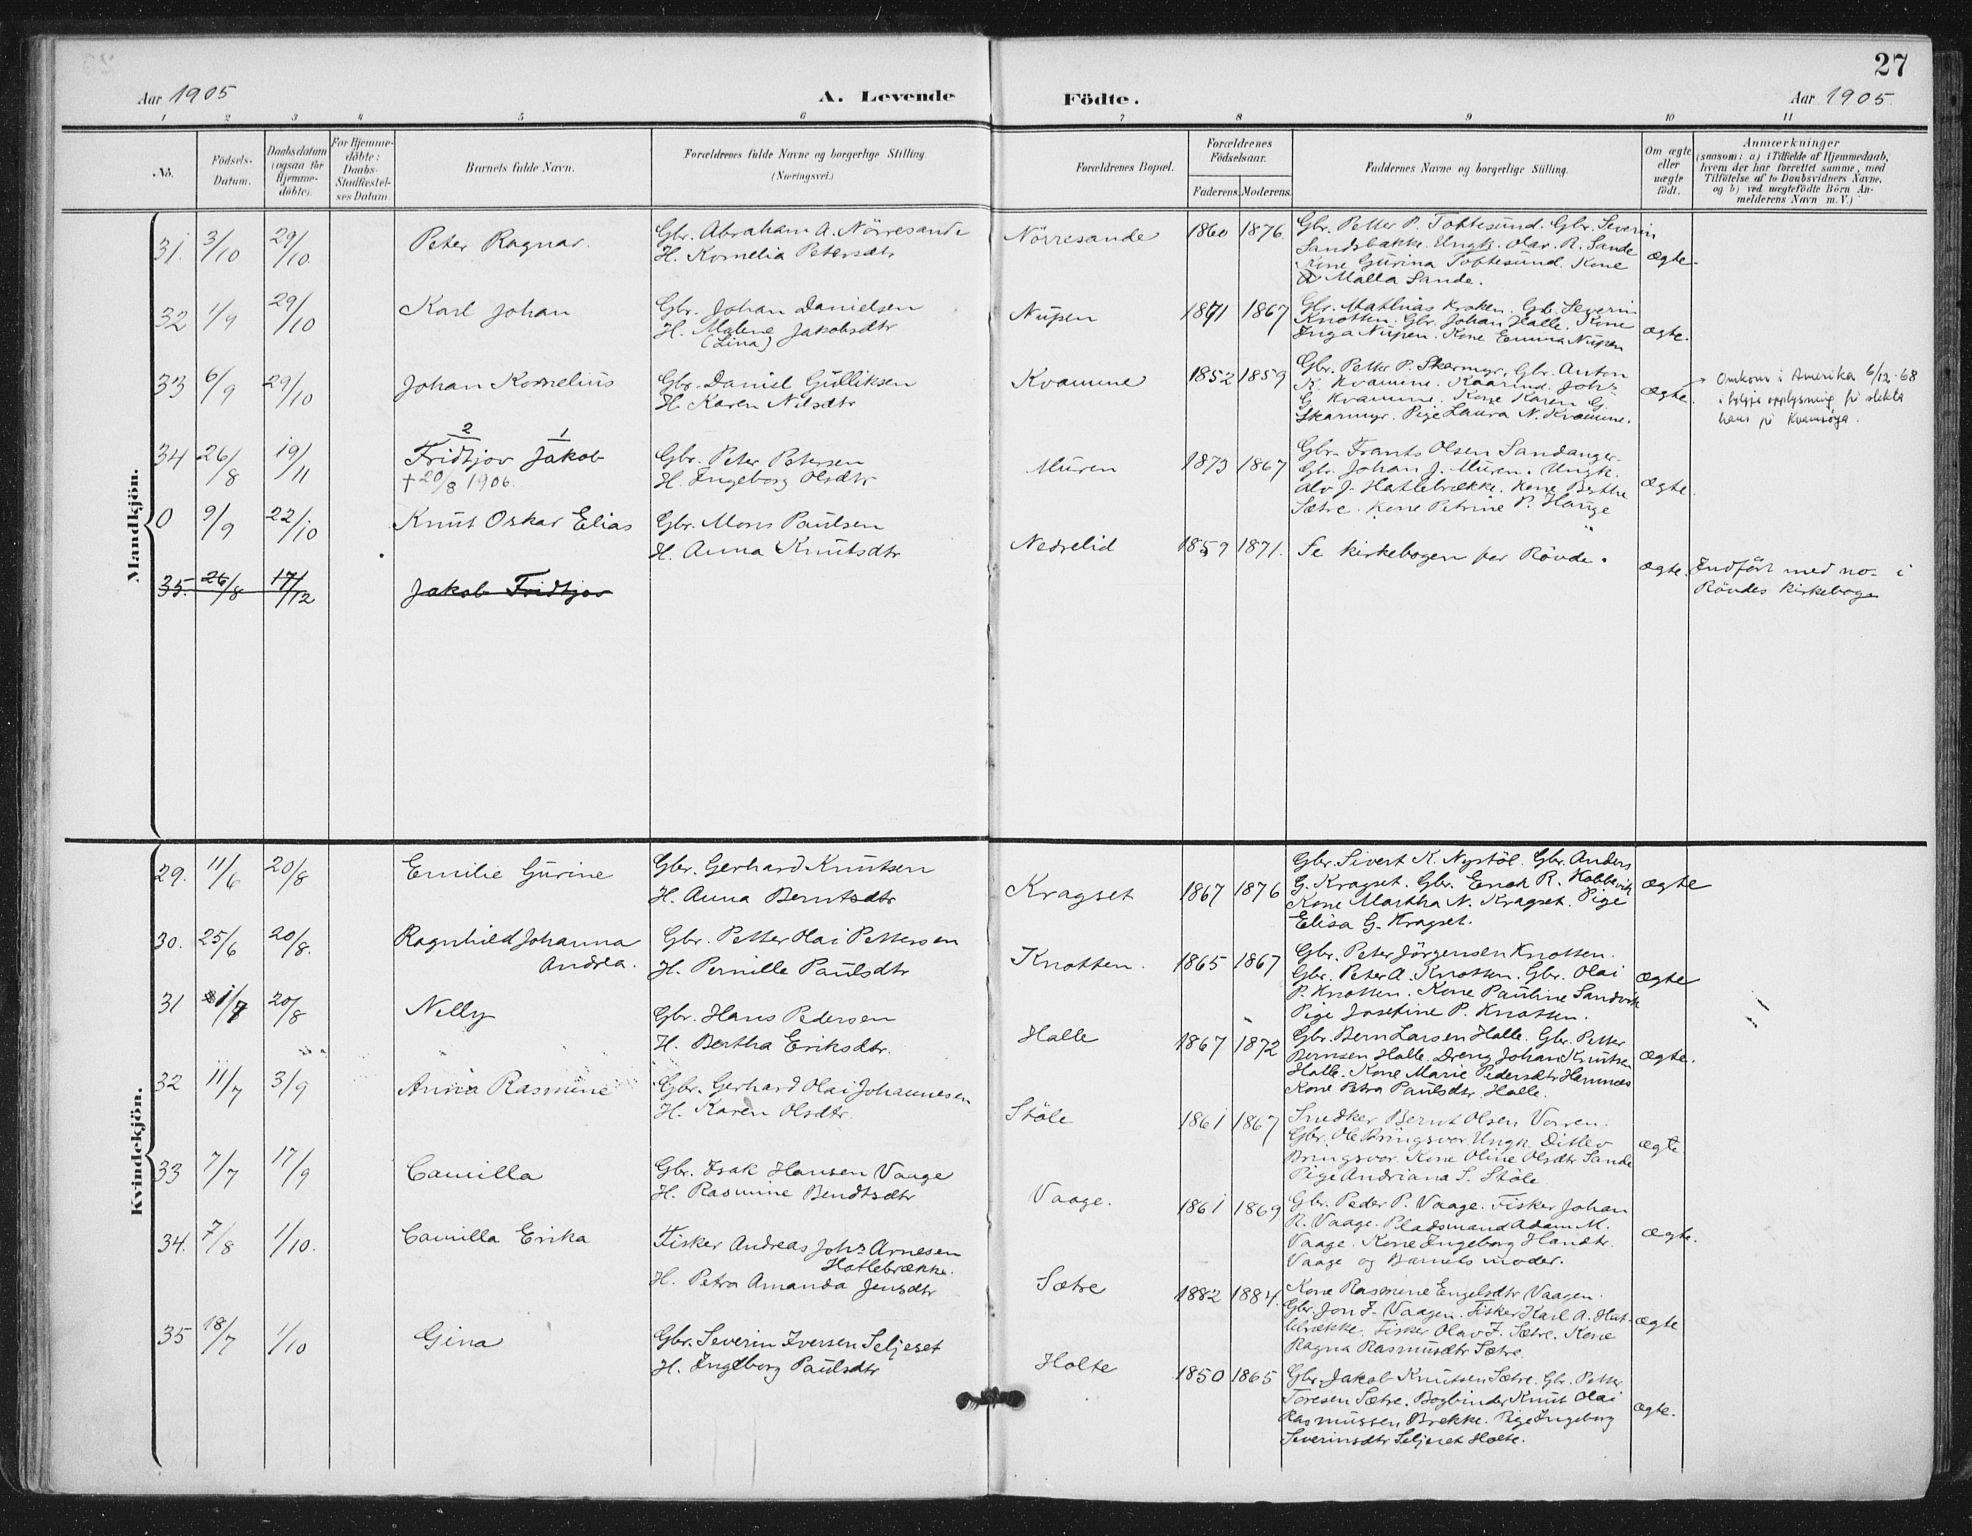 27
Aar 1905
A. Levende
Födte.
Aar 1905.
1 2 3 4 5 6 7 8 9 10 11
No.
Födsels-Datum.
Daabsdatum (ogsaa for Hjemmedöbte).
For Hjemmedöbte: Daabs-Stadfæstelses Datum.
Barnets fulde Navn.
Forældrenes fulde Navne og borgerlige Stilling
(Næringsvei.)
Forældrenes Bopæl.
Forældrenes Födselsaar.
Faderens. Moderens.
Faddernes Navne og borgerlige Stilling.
Om ægte eller uægte födt.
Anmærkninger
(saasom: a) i Tilfælde af Hjemmedaab,
hvem der har forrettet samme, med
Tilföielse af to Daabsvidners Navne,
og b) ved uægtefödte Börn An-
melderens Navn m. V.)
Mandkjön.
31. 3/10 29/10 Peter Ragnar.
Gbr. Abraham A. Nörresande
H. Kornelia Petersdtr
Nörresande 1860 1876.
Gbr. Petter P. Tobtesund. Gbr. Severin
Sandsbakke. Ungk. Olav. R. Sande
Kone Gurina Tobtesund. Kone
Malla Sande.
ægte.
32 1/9 29/10 Karl Johan
Gbr. Johan Danielsen
H. Malene Jakobsdtr
(Lina)
Nupen 1871 1867
Gbr. Mathias Kroken. Gbr. Severin
Knotten. Gbr. Johan Halle. Kone
Inga Nupen. Kone Emma Nupen
ægte.
33 6/9 29/10 Johan Kornelius
Gbr. Daniel Gulliksen
H. Karen Nilsdtr
Kvamme 1852 1859
Gbr. Petter P. Skarmyr, Gbr. Anton
K. Kvamme. Johs
G. Kvamme. Kone Karen G.
Skarmyr. Pige Laura N. Kvamme.
ægte.
Omkom i Amerika 6/12-68
i følgje opplysning frå slekta
hans på Kvamsøya.
34 26/8 19/11 2 1
Fridtjov Jakob
+ 20/8 1906.
Gbr. Peter Petersen
H. Ingeborg Olsdtr
Muren 1873 1867
Gbr. Frants Olsen Sandanger.
Gbr. Johan J. Muren. Ungk.
Alv J. Hatlebrække. Kone Berthe
Sætre. Kone Petrine P. Hauge
ægte.
0 9/9 22/10 Knut Oskar Elias
Gbr. Mons Paulsen
H. Anna Knutsdtr
Nedrelid 1859 1871.
Se kirkebogen for Rövde.
ægte.
Indfört med no- i
Rövdes kirkebog
35. 26/8 17/12 Jakob Fridtjov
Kvindekjön.
29. 11/6 20/8 Emilie Gurine
Gbr. Gerhard Knutsen
H. Anna Berntsdtr
Kragset 1867 1876
Gbr. Sivert K. Nystöl. Gbr. Anders
G. Kragset. Gbr. Enok R. Hobbevik
Kone Martha N. Kragset. Pige
Elisa G. Kragset.
ægte
30. 25/6 20/8. Ragnhild Johanna
Andrea.
Gbr. Petter Olai Pettersen
H. Pernille Paulsdtr
Knotten. 1865 1867
Gbr. Peter Jörgensen Knotten.
Gbr. Peter A. Knotten. Gbr. Olai
P. Knotten. Kone Pauline Sandvik
Pige Josefine P. Knotten.
ægte
31 1/7 20/8 Nelly
Gbr. Hans Pedersen
H. Bertha Eriksdtr.
Halle 1867 1872
Gbr. Bern Larsen Halle. Gbr. Petter
Bernsen Halle. Dreng Johan Knutsen
Halle. Kone Marie Pedersdtr Hamnes
Kone Petra Paulsdtr. Halle.
ægte.
32 11/7 3/9 Anna Rasmine
Gbr. Gerhard Olai Johannesen
H. Karen Olsdtr.
Stöle 1861 1867
Snedker Bernt Olsen Vorren.
Gbr. Ole Bringsvor. Ungk. Ditlev
Bringsvor. Kone Oline Olsdtr Sande
Pige Andriana S. Stöle.
ægte
33 7/7 17/9 Camilla
Gbr. Isak Hansen Vaage
H. Rasmine Bendtsdtr
Vaage. 1861 1869
Gbr. Peder P. Vaage. Fisker Johan
R. Vaage. Pladsmand Adam M.
Vaage. Kone Ingeborg Hansdtr.
Vaage og Barnets moder.
ægte.
34. 7/8 1/10. Camilla Erika
Fisker Andreas Johs Arnesen
Hatlebrække.
H. Petra Amanda Jensdtr
Sætre 1882 1884.
Kone Rasmine Engelsdtr Vaagen.
Gbr. Jon J. Vaagen. Fisker Karl A. Hat-
lebrække. Fisker Olav J. Sætre. Kone
Ragna Rasmusdtr Sætre.
ægte
35 18/7 1/10 Gina
Gbr. Severin Iversen Seljeset
H. Ingeborg Paulsdtr
Holte 1850 1865
Gbr. Jakob Knutsen Sætre. Gbr. Petter
Toresen Sætre. Bogbinder Knut Olai
Rasmussen Brekke. Pige Ingeborg
Severinsdtr Seljeset Holte.
ægte.